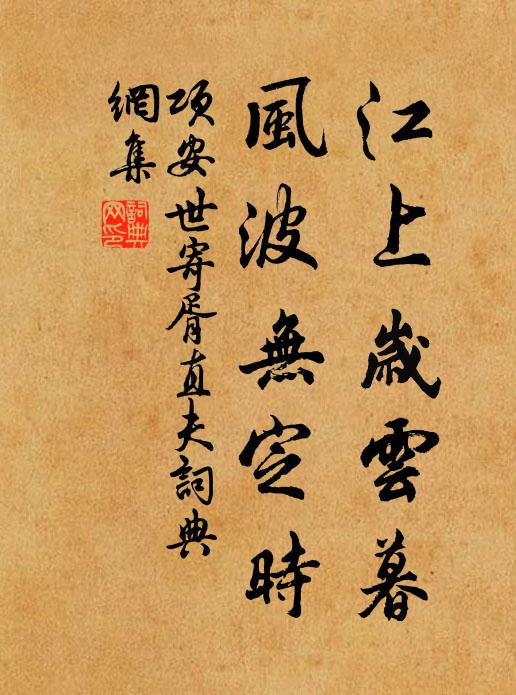 江上歲雲暮
風波無定時
項安世寄胥直夫詞典
網集
詞典
网印